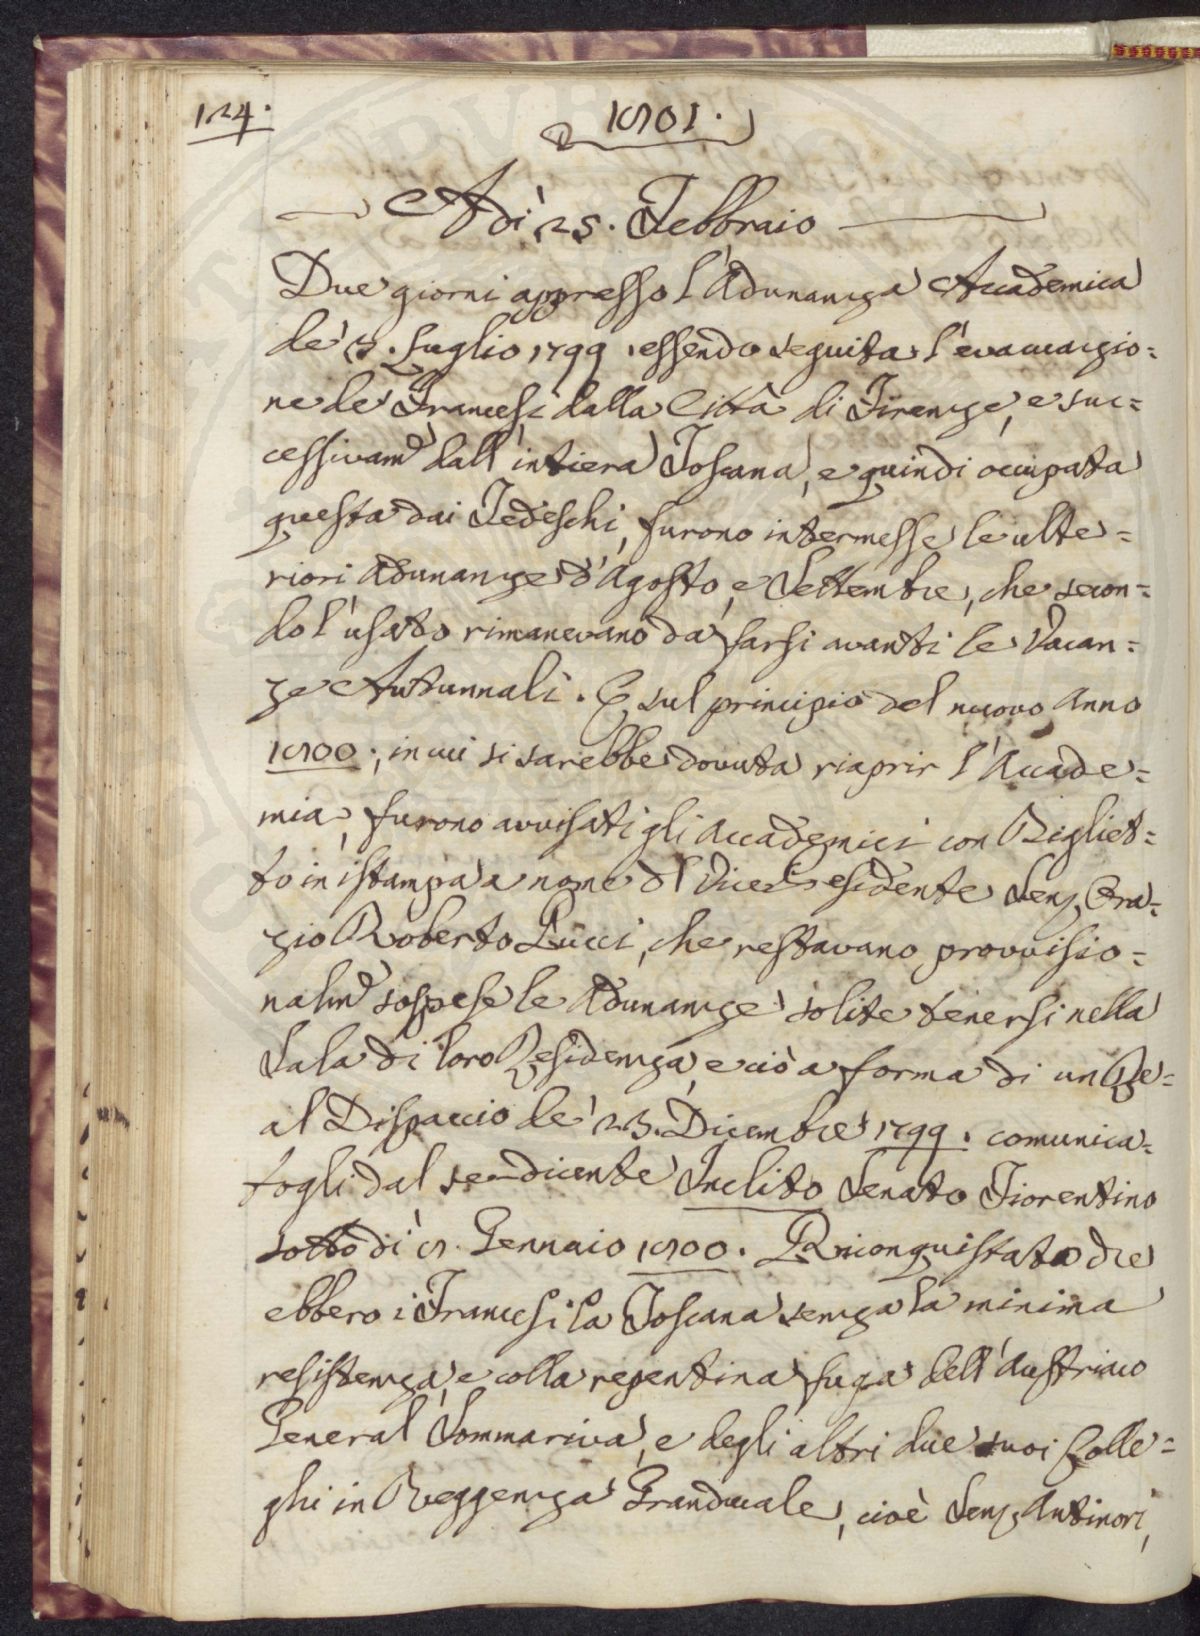 124.
1801.
Adì 25. Febbraio
Due giorni appresso l'Adunanza Accademica
de' 3. Luglio 1799. essendo seguita l'evacuazio=
ne de' Francesi dalla Città di Firenze, e suc=
cessivam.e dall'intiera Toscana, e quindi occupata
questa dai Tedeschi, furono intermesse le ulte=
riori Adunanze d'Agosto, e Settembre, che secon=
do l'usato rimanevano da farsi avanti le Vacan=
ze Autunnali. E sul principio del nuovo Anno
1800., in cui si sarebbe dovuta riaprir l'Accade=
mia, furono avvisati gli Accademici con Bigliet=
to in istampa a nome del Vice Presidente Sen.e Ora=
zio Roberto Pucci, che restavano provvisio=
nalm.e sospese le Adunanze solite tenersi nella
Sala di loro Residenza, e ciò a forma di un Re=
al Dispaccio de' 23. Dicembre 1799. comunica=
togli dal sedicente Inclito Senato Fiorentino
sotto dì 8. Gennaio 1800. Riconquistata che
ebbero i Francesi la Toscana senza la minima
resistenza, e colla repentina fuga dell'Austriaco
General Sommariva, e degli altri due suoi Colle=
ghi in Reggenza Granducale, cioè Sen.e Antinori,